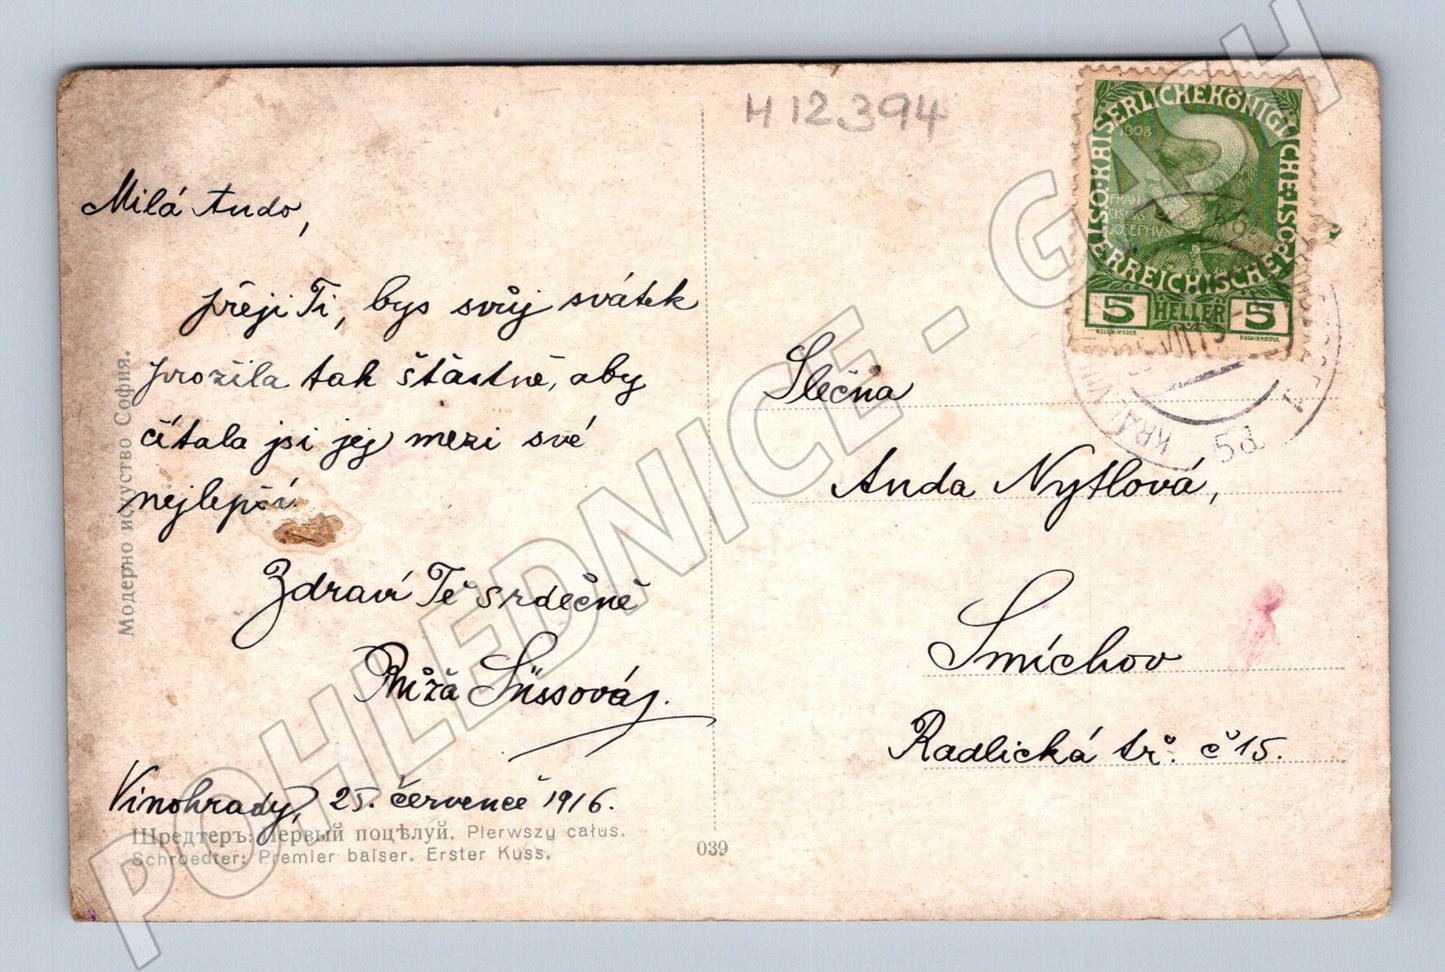 H 12.394
Milá Ando,
přeji Ti, bys svůj svátek
prožila tak šťastně, aby
čítala jsi jej mezi své
nejlepší.
Zdraví Tě srdečně
Růža Süssová.
Vinohrady, 25. července 1916.
Модерно искуство София.
Шредтеръ: Первый поцѣлуй. Pierwszy całus.
Schroedter: Premier baiser. Erster Kuss.
039
KAISERLICHEKÖNIGLICHE
ÖSTERREICHISCHEPOST
1908
FRAN
CISCVS
JOSEPHVS
5 HELLER 5
5d
Slečna
Anda Nytlová,
Smíchov
Radlická tř. č 15.
POHLEDNICE - GASH